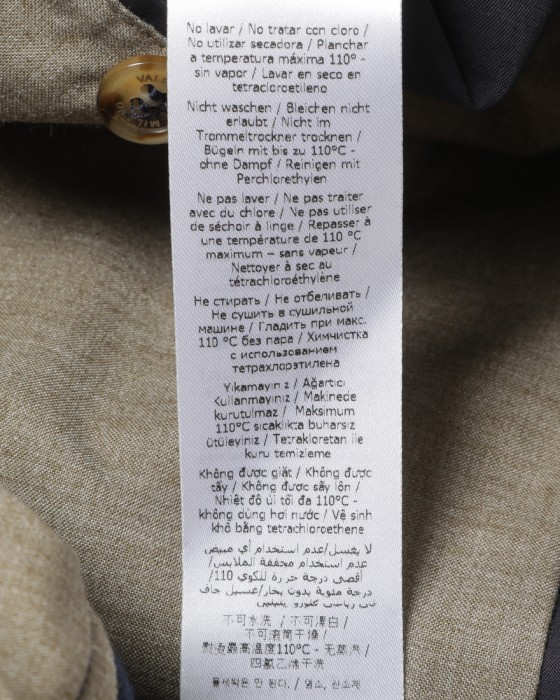 No lavar / No tratar con cloro /
No utilizar secadora / Planchar
a temperatura máxima 110º -
sin vapor / Lavar en seco en
tetracloroetileno
Nicht waschen / Bleichen nicht
erlaubt / Nicht im
Trommeltrockner trocknen /
Bügeln mit bis zu 110°C -
ohne Dampf / Reinigen mit
Perchlorethylen
Ne pas laver / Ne pas traiter
avec du chlore / Ne pas utiliser
de séchoir à linge / Repasser à
une température de 110 °C
maximum – sans vapeur /
Nettoyer à sec au
tétrachloroéthylène
Не стирать / Не отбеливать /
Не сушить в сушильной
машине / Гладить при макс.
110 °C без пара / Химчистка
с использованием
тетрахлорэтилена
Yıkamayın z / Ağartıcı
Kullanmayınız / Makinede
kurutulmaz / Maksimum
110°C sıcaklıkta buharsız
ütüleyiniz / Tetrakloretan ile
kuru temizleme
Không được giặt / Không được
tẩy / Không được sấy lồn /
Nhiệt độ ủi tối đa 110°C -
không dùng hơi nước / Vệ sinh
khô bằng tetrachloroethene
لا يغسل/عدم استخدام أي مبيض
عدم استخدام مجففة الملابس/
أقصى درجة حر رة للكوي 110/
درجة مئوية بدون بخار/غسيل جاف
不可水洗 / 不可漂白 /
不可滚筒干燥 /
熨烫最高温度110°C - 无蒸汽 /
四氯乙烯干洗
물세탁은 안 된다. / 염소, 산소계
VAL